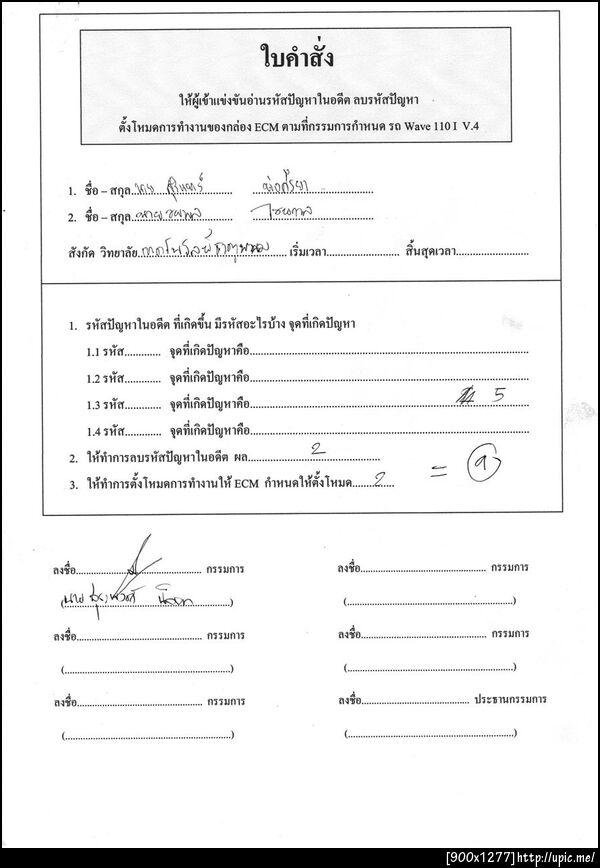 ใบคำสั่ง
ให้ผู้เข้าแข่งขันอ่านรหัสปัญหาในอดีต ลบรหัสปัญหา
ตั้งโหมดการทำงานของกล่อง ECM ตามที่กรรมการกำหนด รถ Wave 110 I V.4
1. ชื่อ – สกุล
2. ชื่อ – สกุล
สังกัด วิทยาลัย เริ่มเวลา สิ้นสุดเวลา
1. รหัสปัญหาในอดีต ที่เกิดขึ้น มีรหัสอะไรบ้าง จุดที่เกิดปัญหา
1.1 รหัส............ จุดที่เกิดปัญหาคือ
1.2 รหัส............ จุดที่เกิดปัญหาคือ
1.3 รหัส............ จุดที่เกิดปัญหาคือ 5
1.4 รหัส............ จุดที่เกิดปัญหาคือ
2. ให้ทำการลบรหัสปัญหาในอดีต ผล 2
3. ให้ทำการตั้งโหมดการทำงานให้ ECM กำหนดให้ตั้งโหมด 2 =
ลงชื่อ กรรมการ ลงชื่อ กรรมการ
ลงชื่อ กรรมการ ลงชื่อ กรรมการ
ลงชื่อ กรรมการ ลงชื่อ ประธานกรรมการ
[900x1277]http://upic.me/